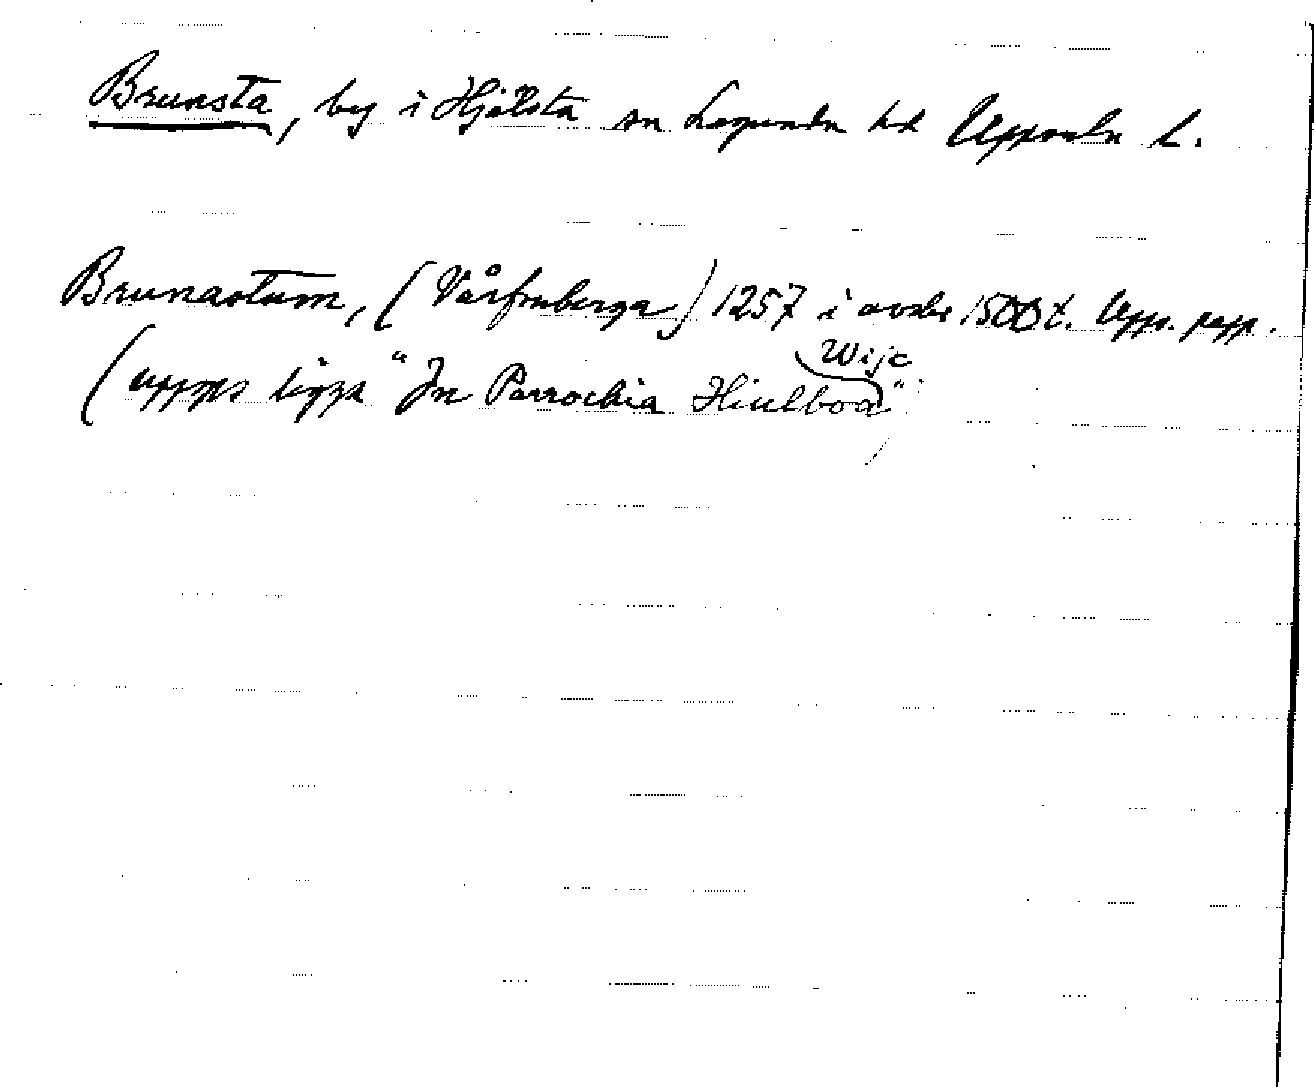 Brunsta, by i Hjälsta sn Lagunda hd Uppsala l.
Brunastum, (Vårfruberga) 1257 i avskr 1500 t. Upps. papp.
Wijc
(uppgs ligga "Jn Parrochia Hiulboa"